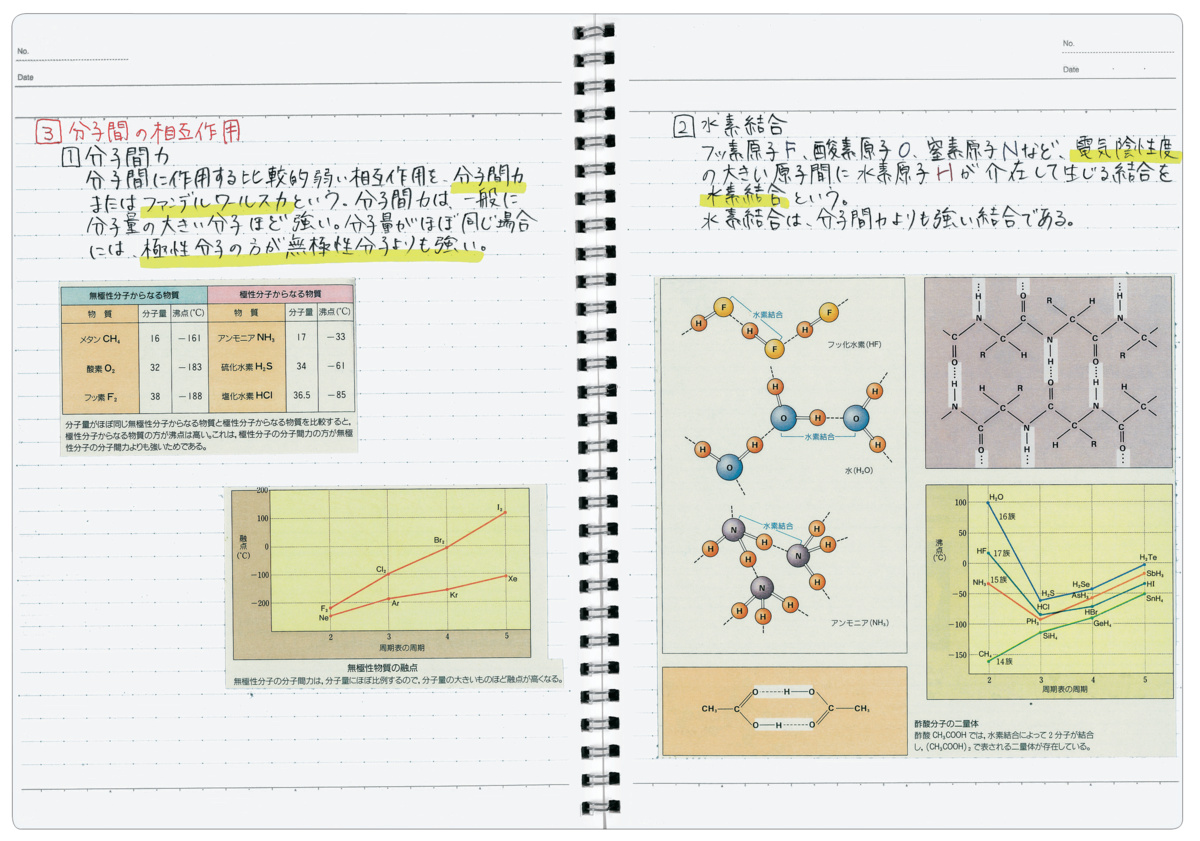 No.
Date
③ 分子間の相互作用
① 分子間力
分子間に作用する比較的弱い相互作用を、分子間力
またはファンデルワールス力という。分子間力は、一般に
分子量の大きい分子ほど強い。分子量がほぼ同じ場合
には、極性分子の方が無極性分子よりも強い。
無極性分子からなる物質 極性分子からなる物質
物 質 分子量 沸点(℃) 物 質 分子量 沸点(℃)
メタン CH₄ 16 −161 アンモニア NH₃ 17 −33
酸素 O₂ 32 −183 硫化水素 H₂S 34 −61
フッ素 F₂ 38 −188 塩化水素 HCl 36.5 −85
分子量がほぼ同じ無極性分子からなる物質と極性分子からなる物質を比較すると、
極性分子からなる物質の方が沸点は高い。これは、極性分子の分子間力の方が無極
性分子の分子間力よりも強いためである。
融点(℃)
200
100
0
−100
−200
F₂ Cl₂ Br₂ I₂
Ne Ar Kr Xe
2 3 4 5
周期表の周期
無極性物質の融点
無極性分子の分子間力は、分子量にほぼ比例するので、分子量の大きいものほど融点が高くなる。
No.
Date
② 水素結合
フッ素原子F、酸素原子O、窒素原子Nなど、電気陰性度
の大きい原子間に水素原子Hが介在して生じる結合を
水素結合という。
水素結合は、分子間力よりも強い結合である。
H F H F H F
水素結合
フッ化水素(HF)
H O H O H H
H O H
水素結合
水(H₂O)
N H H H
N H H H
N H H H
水素結合
アンモニア(NH₃)
H O H O H
N C R H C N C
C C C N C C
O R H H R O
H O H
N H R O N H R C
C C C C C
O N H R O
H
沸点(℃)
100
50
0
−50
−100
−150
H₂O 16族
HF 17族
NH₃ 15族
CH₄ 14族
H₂S HCl PH₃ SiH₄
H₂Se AsH₃ HBr GeH₄
H₂Te SbH₃ HI SnH₄
2 3 4 5
周期表の周期
O H O
CH₃ C C CH₃
O H O
酢酸分子の二量体
酢酸 CH₃COOH では、水素結合によって2分子が結合
し、(CH₃COOH)₂ で表される二量体が存在している。